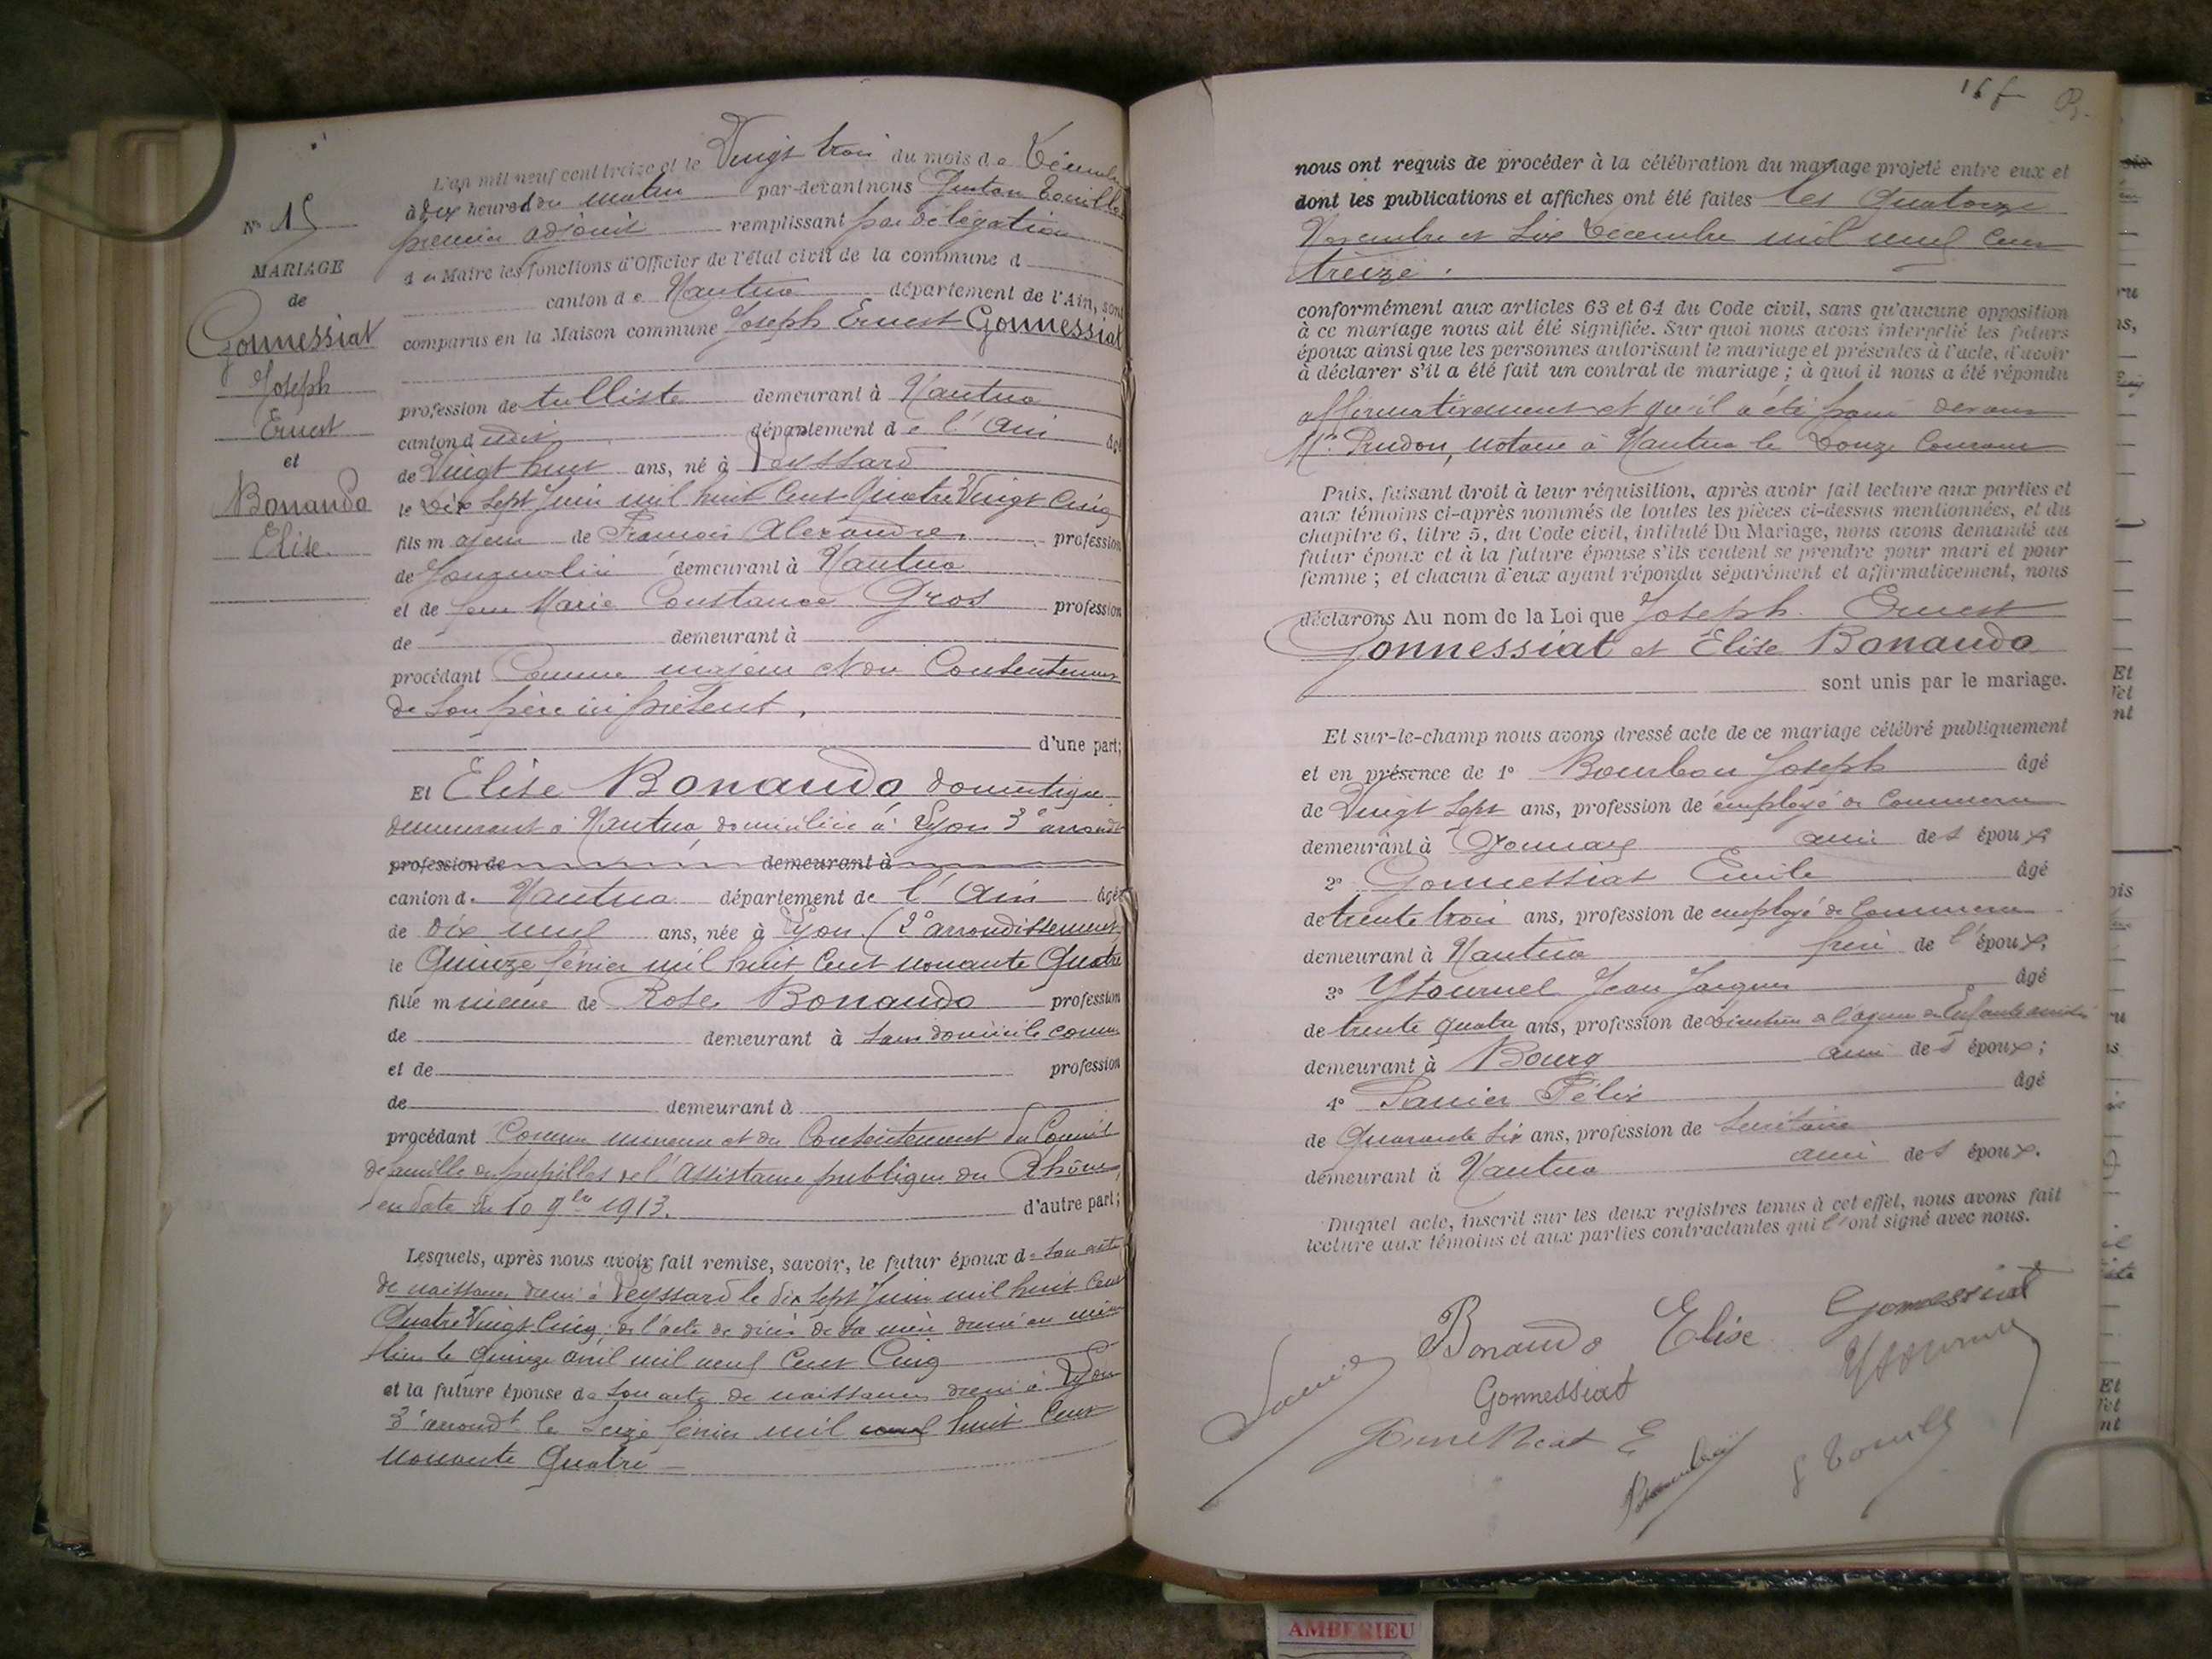 L'an mil neuf cent treize et le Vingt trois du mois de Décembre
à dix heures du matin par-devant nous
premier adjoint remplissant par délégation
du Maire les fonctions d'Officier de l'état civil de la commune d
canton de Nantua département de l'Ain, sont
comparus en la Maison commune Joseph Ernest Gonnessiat
profession de tulliste demeurant à Nantua
canton dudit département de l'Ain âgé
de Vingt huit ans, né à Peyssard
le dix sept Juin mil huit cent Quatre Vingt Cinq
fils majeur de François Alexandre profession
de Journalier demeurant à Nantua
et de feue Marie Constance Gros profession
de demeurant à
procédant Comme majeur et du Consentement
de son père ici présent,
d'une part;
Et Elise Bonaudo domestique
demeurant à Nantua domiciliée à Lyon 3e arrondt
profession de demeurant à
canton de Nantua département de l'Ain âgée
de dix neuf ans, née à Lyon (2e arrondissement
le Quinze février mil huit cent nonante Quatre
fille mineure de Rose Bonaudo profession
de demeurant à sans domicile connu
et de profession
de demeurant à
procédant Comme mineure et du Consentement du Conseil
de famille des pupilles de l'Assistance publique du Rhône,
en date du 10 9bre 1913. d'autre part;
Lesquels, après nous avoir fait remise, savoir, le futur époux de son acte
de naissance dressé à Peyssard le dix sept Juin mil huit cent
Quatre Vingt Cinq, de l'acte de décès de sa mère dressé au même
lieu le quinze avril mil neuf cent Cinq
et la future épouse de son acte de naissance dressé à Lyon
3e arrondt le Seize février mil neuf huit cent
nonante Quatre
N° 15
MARIAGE
de
Gonnessiat
Joseph
Ernest
et
Bonaudo
Elise
nous ont requis de procéder à la célébration du mariage projeté entre eux et
dont les publications et affiches ont été faites les Quatorze
Novembre et Six Décembre mil neuf cent
treize.
conformément aux articles 63 et 64 du Code civil, sans qu'aucune opposition
à ce mariage nous ait été signifiée. Sur quoi nous avons interpellé les futurs
époux ainsi que les personnes autorisant le mariage et présentes à l'acte, d'avoir
à déclarer s'il a été fait un contrat de mariage ; à quoi il nous a été répondu
affirmativement et qu'il a été passé devant
Me Prudon, notaire à Nantua le Douze Courant
Puis, faisant droit à leur réquisition, après avoir fait lecture aux parties et
aux témoins ci-après nommés de toutes les pièces ci-dessus mentionnées, et du
chapitre 6, titre 5, du Code civil, intitulé Du Mariage, nous avons demandé au
futur époux et à la future épouse s'ils veulent se prendre pour mari et pour
femme ; et chacun d'eux ayant répondu séparément et affirmativement, nous
déclarons Au nom de la Loi que Joseph Ernest
Gonnessiat et Elise Bonaudo
sont unis par le mariage.
Et sur-le-champ nous avons dressé acte de ce mariage célébré publiquement
et en présence de 1° Bourbon Joseph âgé
de Vingt sept ans, profession de employé de Commerce
demeurant à Oyonnax ami des époux
2° Gonnessiat Emile âgé
de trente trois ans, profession de employé de Commerce
demeurant à Nantua frère de l'époux,
3° Ytournel Jean Jacques âgé
de trente quatre ans, profession de Directeur de l'agence des Enfants assistés
demeurant à Bourg ami des époux;
4° Panier Félix âgé
de Quarante six ans, profession de Secrétaire
demeurant à Nantua ami des époux.
Duquel acte, inscrit sur les deux registres tenus à cet effet, nous avons fait
lecture aux témoins et aux parties contractantes qui l'ont signé avec nous.
Bonaudo Elise Gonnessiat
Panier Gonnessiat Ytournel
Gonnessiat E
AMBERIEU